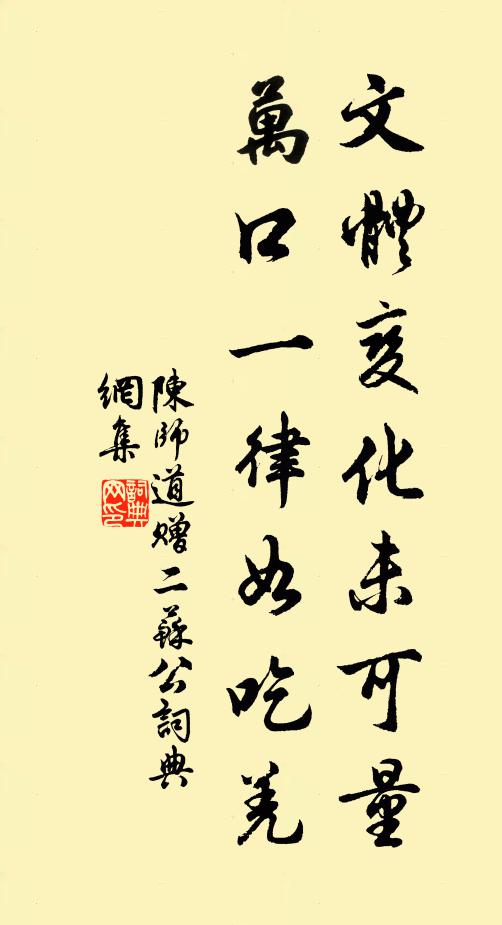 文體変化未可量
萬口一律如吃羌
陳師道贈二蘇公詞典
網集
詞典
网印